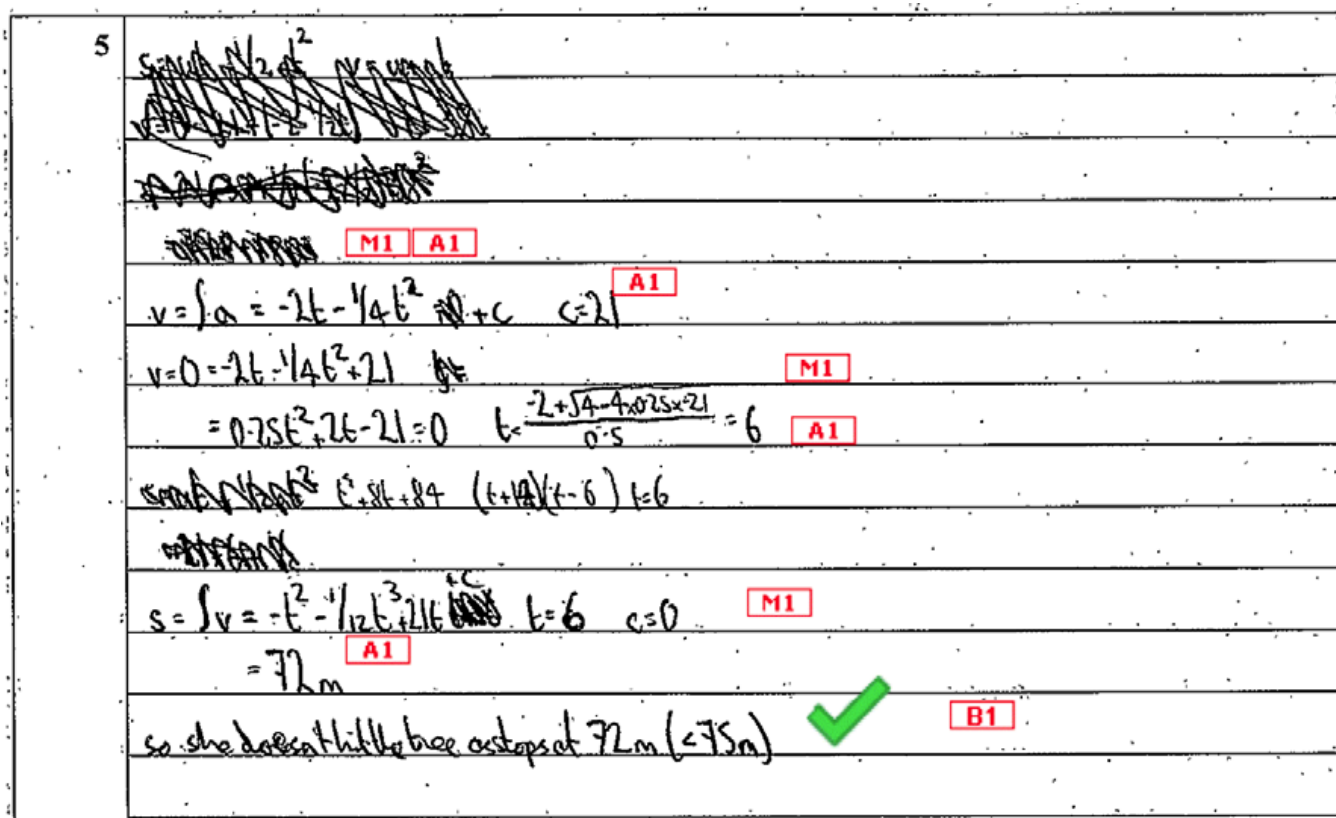 5
M1 A1
A1
v = ∫a = -2t - 1/4t² + c c=21
v=0 = -2t - 1/4t² + 21
M1
= 0.25t² + 2t - 21 = 0 t = (-2 + √4 - 4x0.25x-21)/0.5 = 6 A1
t² + 8t + 84 (t+14)(t-6) t=6
s = ∫v = -t² - 1/12t³ + 21t +c t=6 c=0 M1
= 72m A1
so she doesn't hit the tree as stops at 72m (<75m) B1